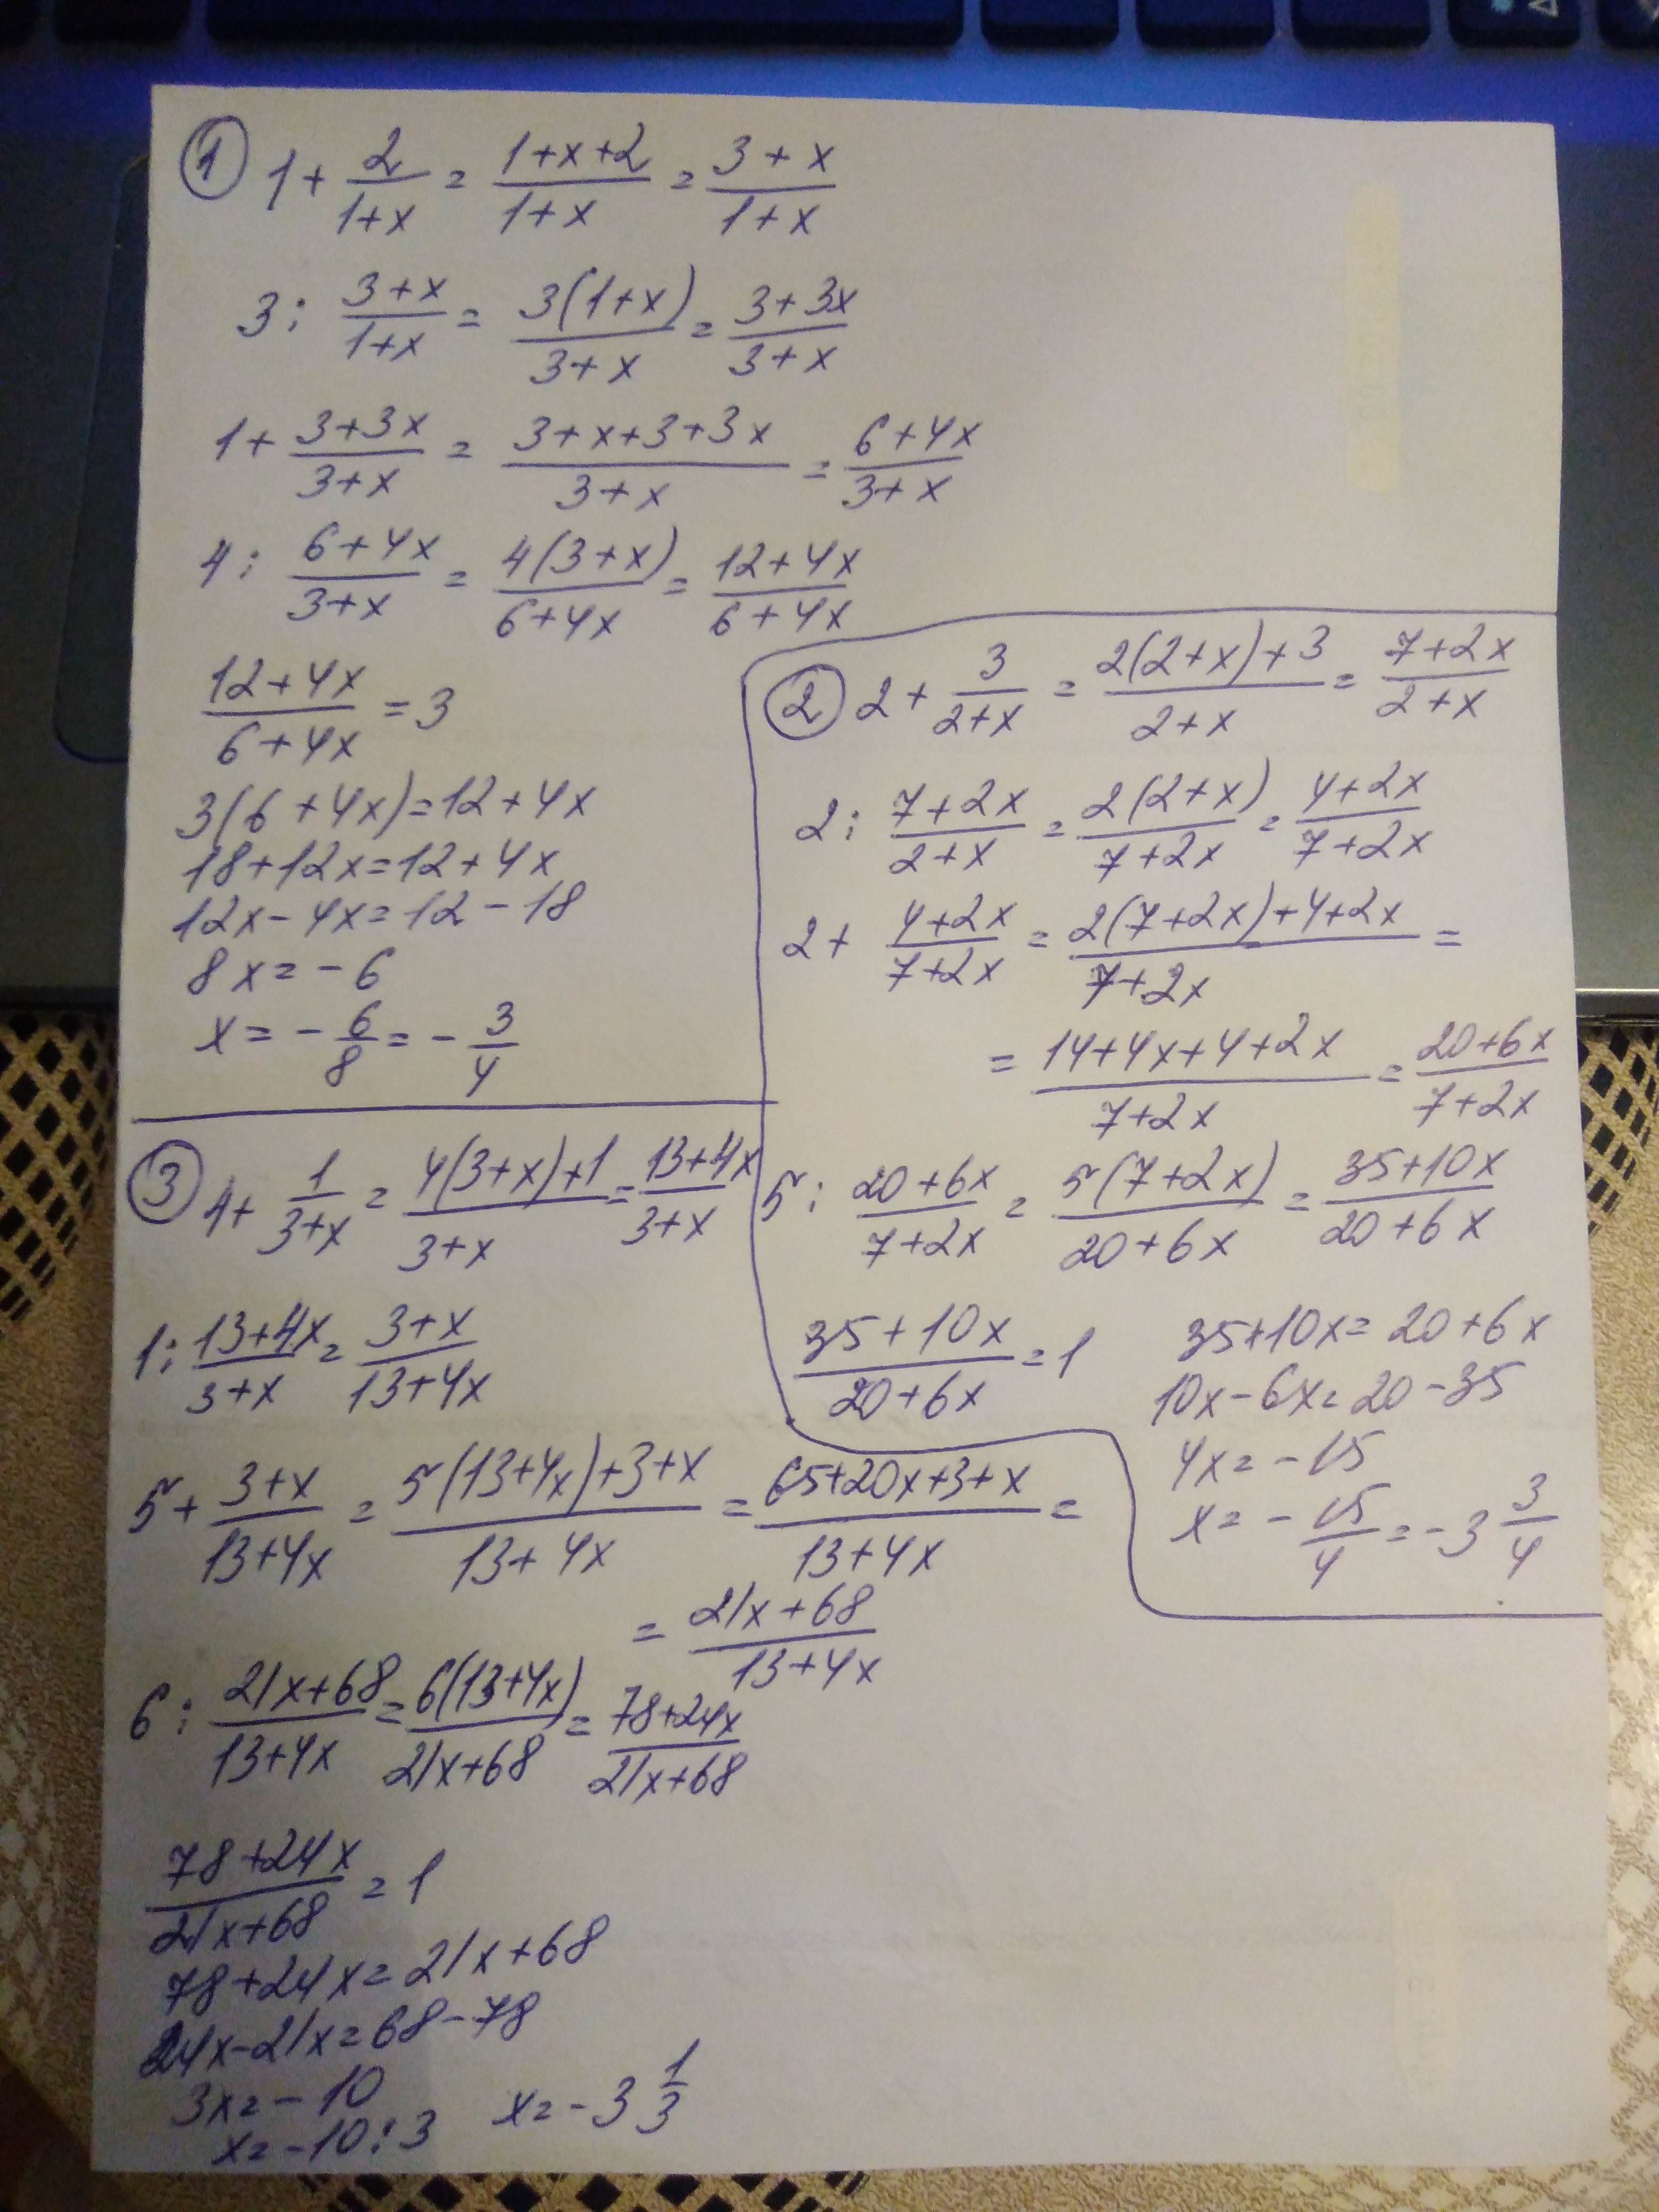 ① 1 + 2/(1+x) = (1+x+2)/(1+x) = (3+x)/(1+x)
3 : (3+x)/(1+x) = 3(1+x)/(3+x) = (3+3x)/(3+x)
1 + (3+3x)/(3+x) = (3+x+3+3x)/(3+x) = (6+4x)/(3+x)
4 : (6+4x)/(3+x) = 4(3+x)/(6+4x) = (12+4x)/(6+4x)
(12+4x)/(6+4x) = 3
3(6+4x)=12+4x
18+12x=12+4x
12x-4x=12-18
8x=-6
x=-6/8=-3/4
② 2 + 3/(2+x) = (2(2+x)+3)/(2+x) = (7+2x)/(2+x)
2 : (7+2x)/(2+x) = 2(2+x)/(7+2x) = (4+2x)/(7+2x)
2 + (4+2x)/(7+2x) = (2(7+2x)+4+2x)/(7+2x) =
= (14+4x+4+2x)/(7+2x) = (20+6x)/(7+2x)
5 : (20+6x)/(7+2x) = 5(7+2x)/(20+6x) = (35+10x)/(20+6x)
(35+10x)/(20+6x) = 1
35+10x=20+6x
10x-6x=20-35
4x=-15
x=-15/4=-3 3/4
③ 4 + 1/(3+x) = (4(3+x)+1)/(3+x) = (13+4x)/(3+x)
1 : (13+4x)/(3+x) = (3+x)/(13+4x)
5 + (3+x)/(13+4x) = (5(13+4x)+3+x)/(13+4x) = (65+20x+3+x)/(13+4x) =
= (21x+68)/(13+4x)
6 : (21x+68)/(13+4x) = 6(13+4x)/(21x+68) = (78+24x)/(21x+68)
(78+24x)/(21x+68) = 1
78+24x=21x+68
24x-21x=68-78
3x=-10
x=-10:3 x=-3 1/3